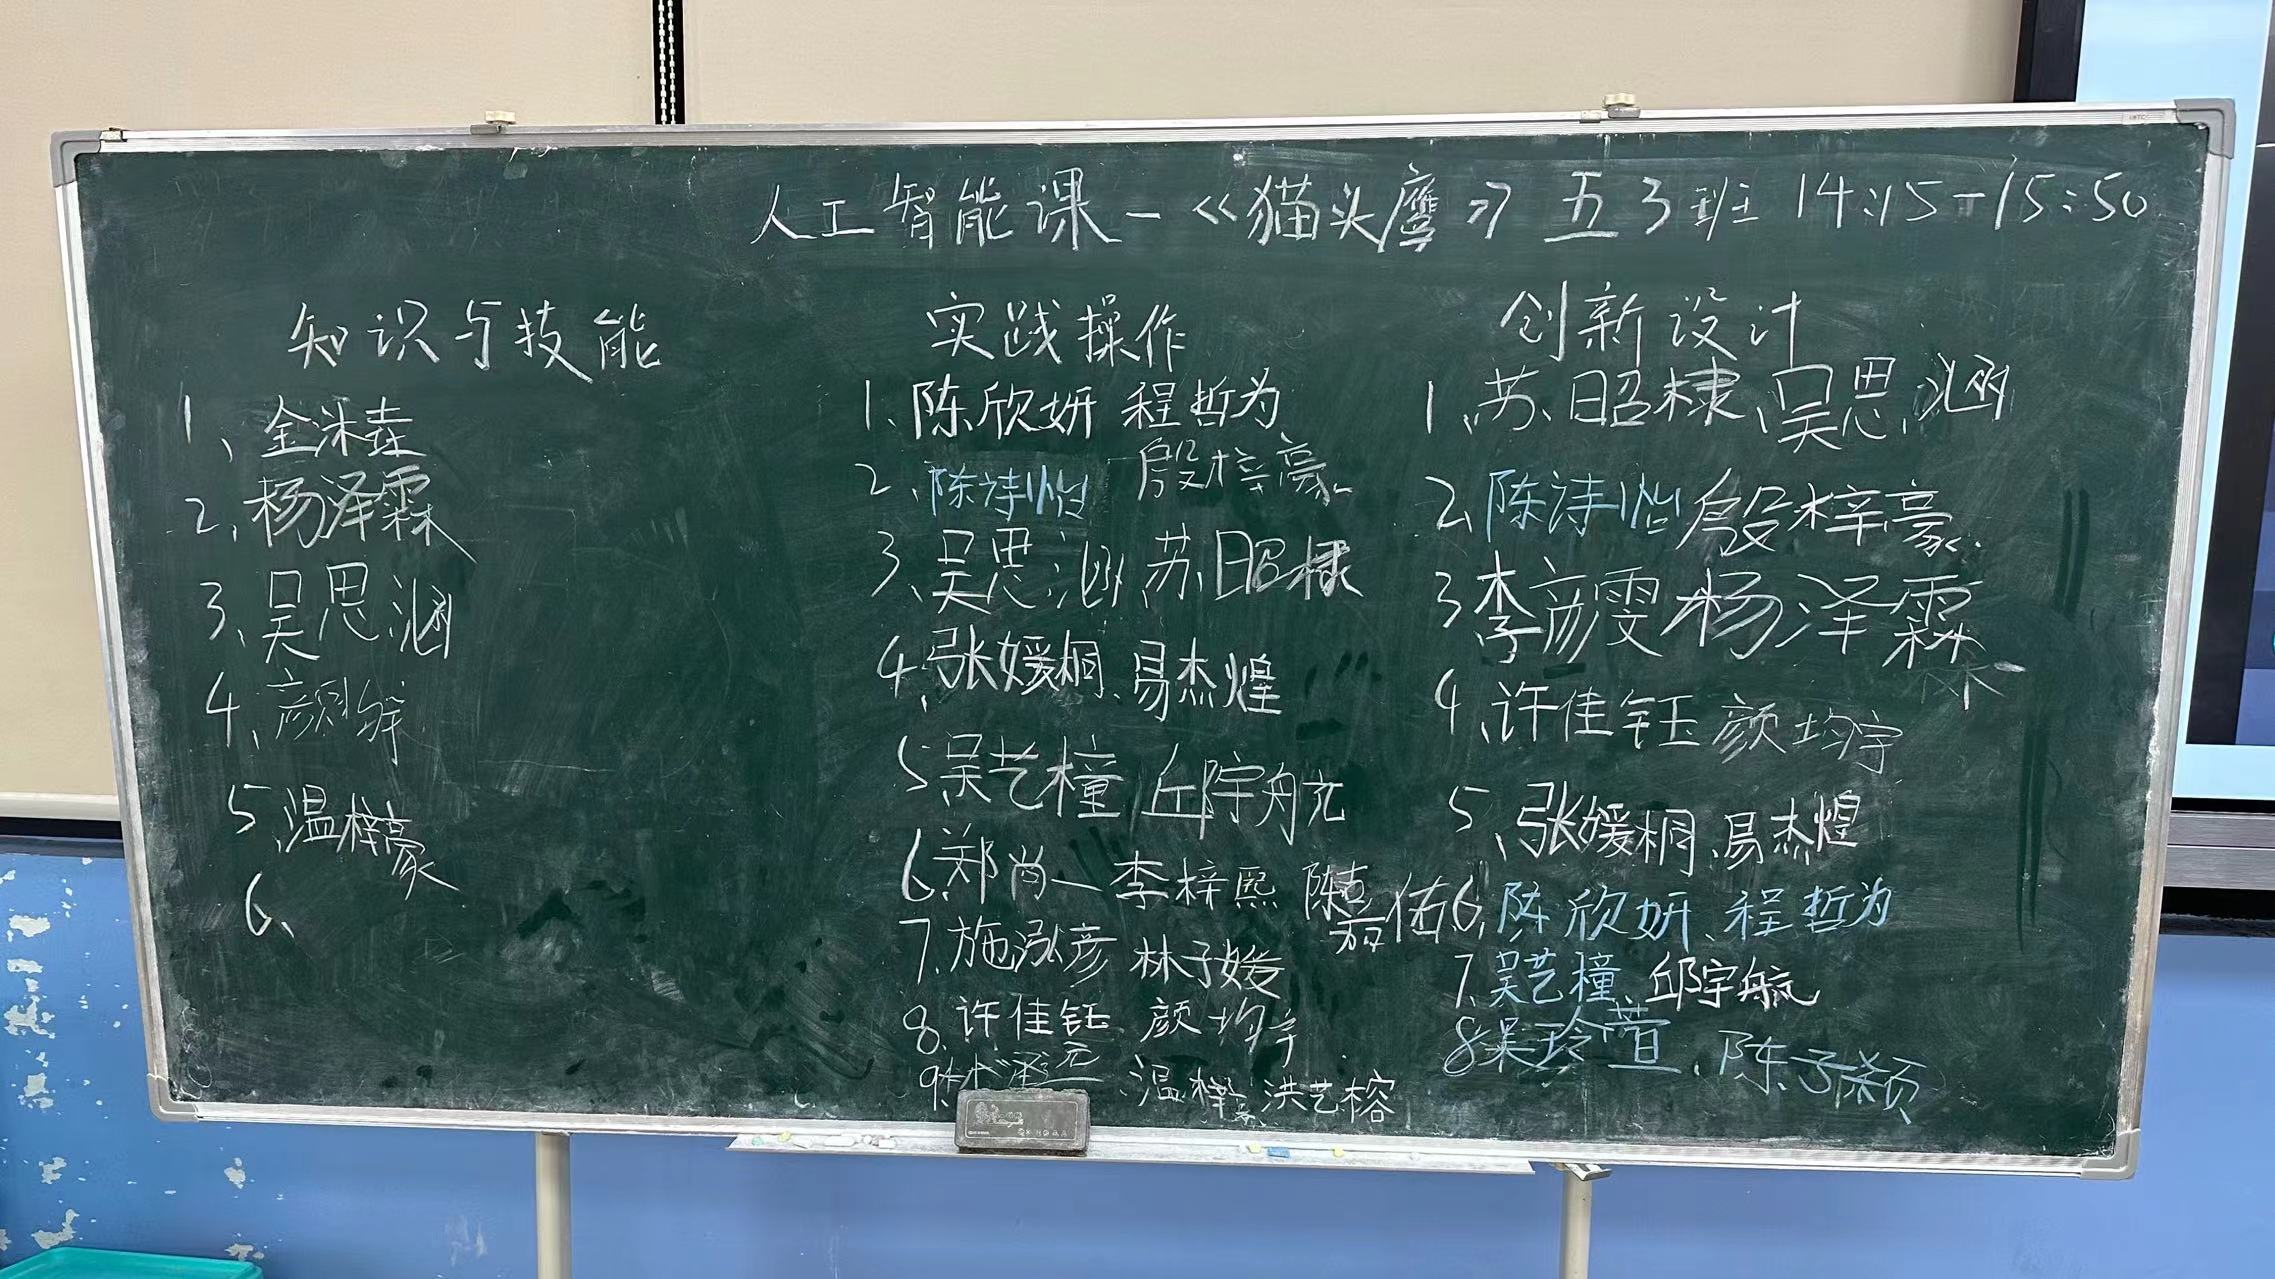 人工智能课-《猫头鹰》 五3班 14:15-15:50
知识与技能
1、金沐垚
2、杨泽霖
3、吴思涵
4、颜均宇
5、温梓豪
6、
实践操作
1、陈欣妍 程哲为
2、陈诗怡 殷梓豪
3、吴思涵、苏昭棣
4、张媛桐、易杰煌
5、吴艺橦 丘宇航
6、郑尚一 李梓熙 陈嘉佑
7、施泓彦 林子媛
8、许佳钰、颜均宇
9、林 温梓豪 洪艺榕
创新设计
1、苏昭棣、吴思涵
2、陈诗怡 殷梓豪
3、李彦雯 杨泽霖
4、许佳钰 颜均宇
5、张媛桐、易杰煌
6、陈欣妍、程哲为
7、吴艺橦 邱宇航
8、吴玲萱、陈子颖